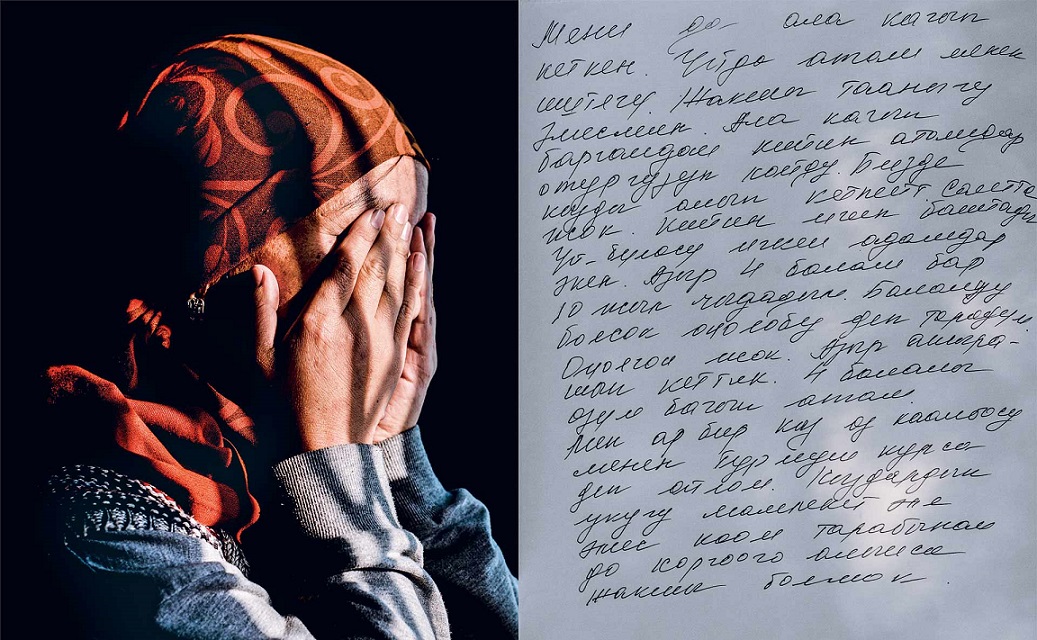 Мени да ала качып
кеткен. Үйдө атам менен
иштечү. Жакшы таанычу
эмесмин. Ала качып
баргандан кийин атамдар
отургузуп койду. Бизде
кызды алып кетпейт. Салтта
жок. Кийин мени баштады
Үй-бүлөсү ичкен адамдар
экен. Азыр 4 балам бар
10 жыл чыдадым. Баландуу
болсок оңолобу деп төрөдүм.
Оңолгон жок. Азыр ажыра-
шып кеттик. 4 баламы
өзүм багып атам.
Мен ар бир кыз өз каалоосу
менен турмуш курса
деп ойлом. Кыздардын
укугу мамлекет эле
эмес коом тарабынан
да коргоого алынса
жакшы болмок.